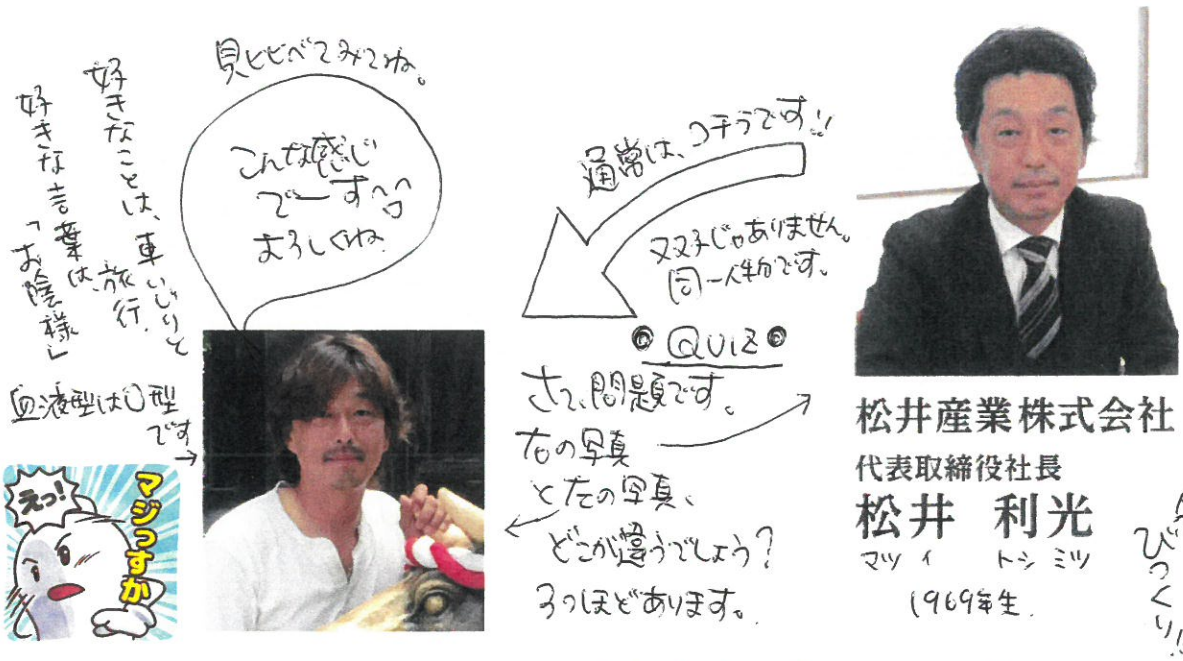 見比べてみてね。
こんな感じ
でーす^^
よろしくね
好きなことは、車いじりと
旅行。
好きな言葉は、
「お陰様」
血液型はO型
です→
えっ!
マジっすか
通常は、コチラです!!
双子じゃありません。
同一人物です。
◎QUIZ◎
さて、問題です。
右の写真
と左の写真、
どこが違うでしょう?
3つほどあります。
松井産業株式会社
代表取締役社長
松井 利光
マツイ トシミツ
1969年生.
びっくり!!